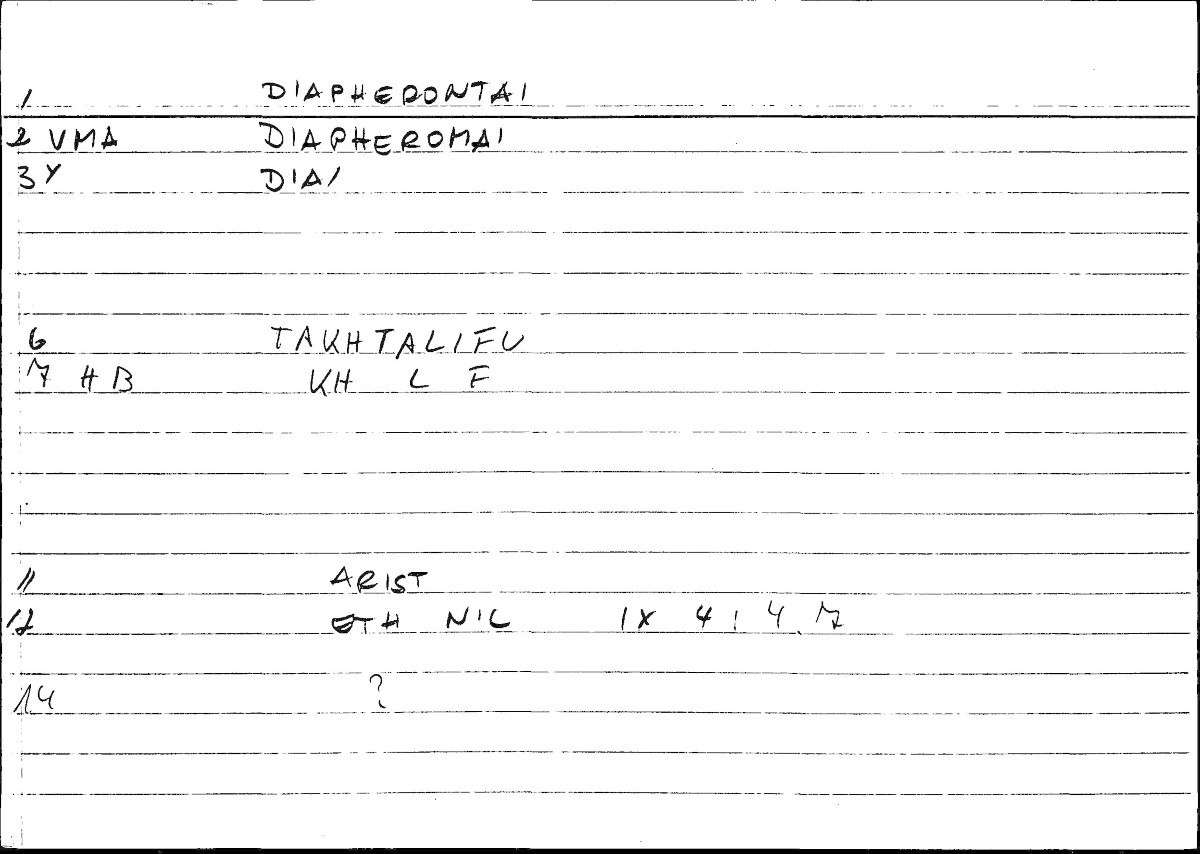 1 DIAPHERONTAI
2 VMA DIAPHEROMAI
3Y DIA/
6 TAKHTALIFU
7 HB KH L F
11 ARIST
12 ETH NIC IX 4 : 4.7
14 ?